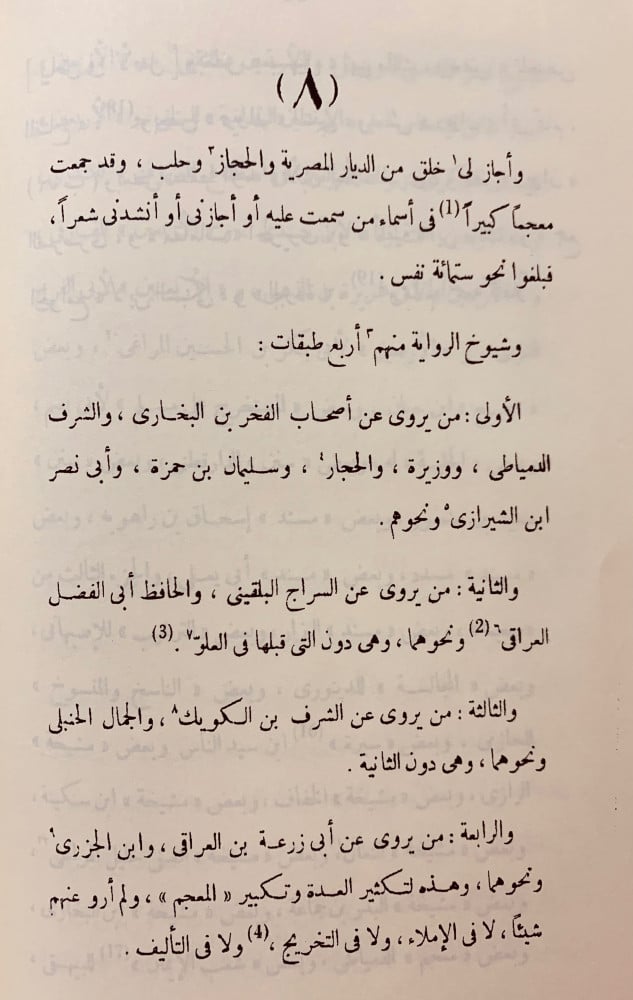 (٨)
وأجاز لى١ خلق من الديار المصرية والحجاز٢ وحلب ، وقد جمعت
معجماً كبيراً(1) فى أسماء من سمعت عليه أو أجازنى أو أنشدنى شعراً،
فبلغوا نحو ستمائة نفس .
وشيوخ الرواية منهم٣ أربع طبقات :
الأولى : من يروى عن أصحاب الفخر بن البخارى ، والشرف
الدمياطى ، ووزيرة ، والحجار٤ ، وسليمان بن حمزة ، وأبى نصر
ابن الشيرازى٥ ونحوهم .
والثانية : من يروى عن السراج البلقينى ، والحافظ أبى الفضل
العراقى٦ (2) ونحوهما ، وهى دون التى قبلها فى العلوّ٧ .(3)
والثالثة : من يروى عن الشرف بن الكويك٨ ، والجمال الحنبلى
ونحوهما ، وهى دون الثانية .
والرابعة : من يروى عن أبى زرعة بن العراقى ، وابن الجزرى٩
ونحوهما ، وهذه لتكثير العدة وتكبير « المعجم » ، ولم أرو عنهم
شيئاً ، لا فى الإملاء ، ولا فى التخريج ،(4) ولا فى التأليف .